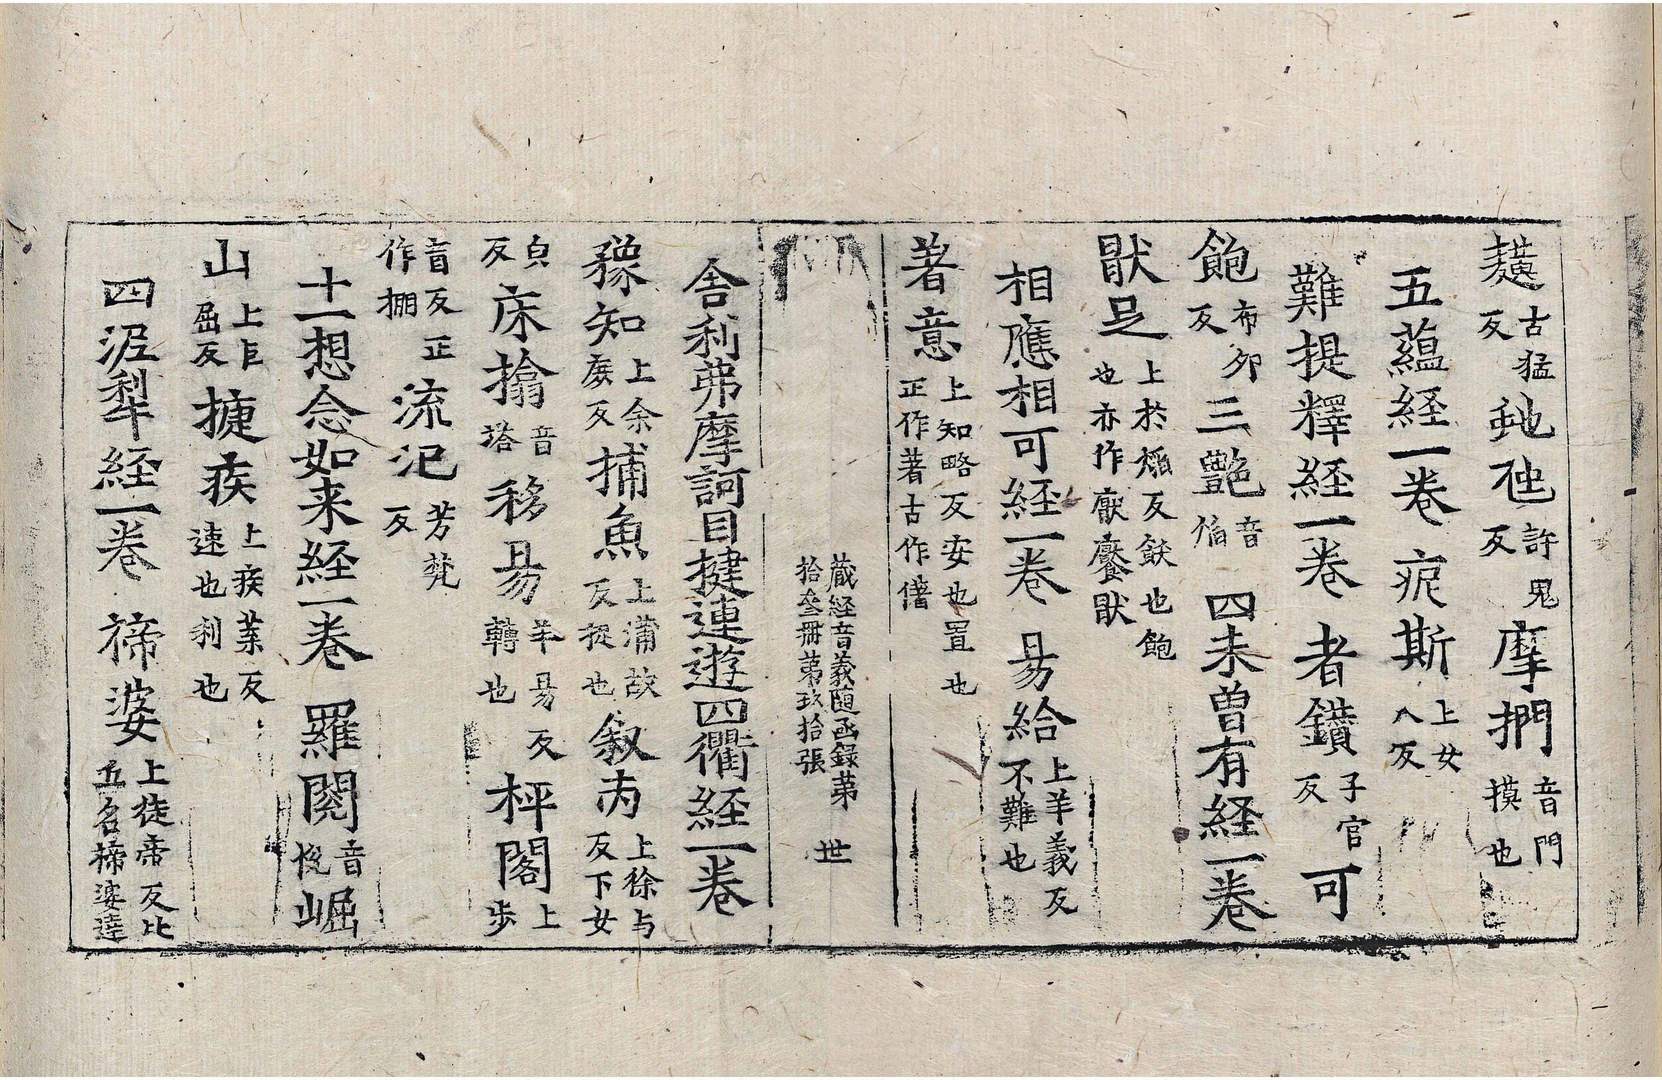 䵃古猛反虵虺許鬼反摩捫音門摸也
五蘊経一卷 痆斯上女八反
難提釋経一卷 者鑽子官反可
飽布夘反三艷音焰 四未曽有経一卷
猒足上於焰反飫也飽也亦作厭饜猒
相應相可経一卷 易給上羊義反不難也
著意上知略反安也置也正作著古作𠍽
藏経音義随函録第拾叄冊第玖拾張 世
舎利弗摩訶目揵連遊四衢経一卷
豫知上余庻反捕魚上蒲故反捉也叙肭上徐与反下女
𩨨反床搨音塔移易羊易反轉也枰閣上步
盲反正作棚流氾芳梵反
十一想念如来経一卷 羅閱音恱崛
山上巨屈反捷疾上疾葉反速也利也
四泥犁経一卷 褅婆上徒帝反比丘名褅婆達